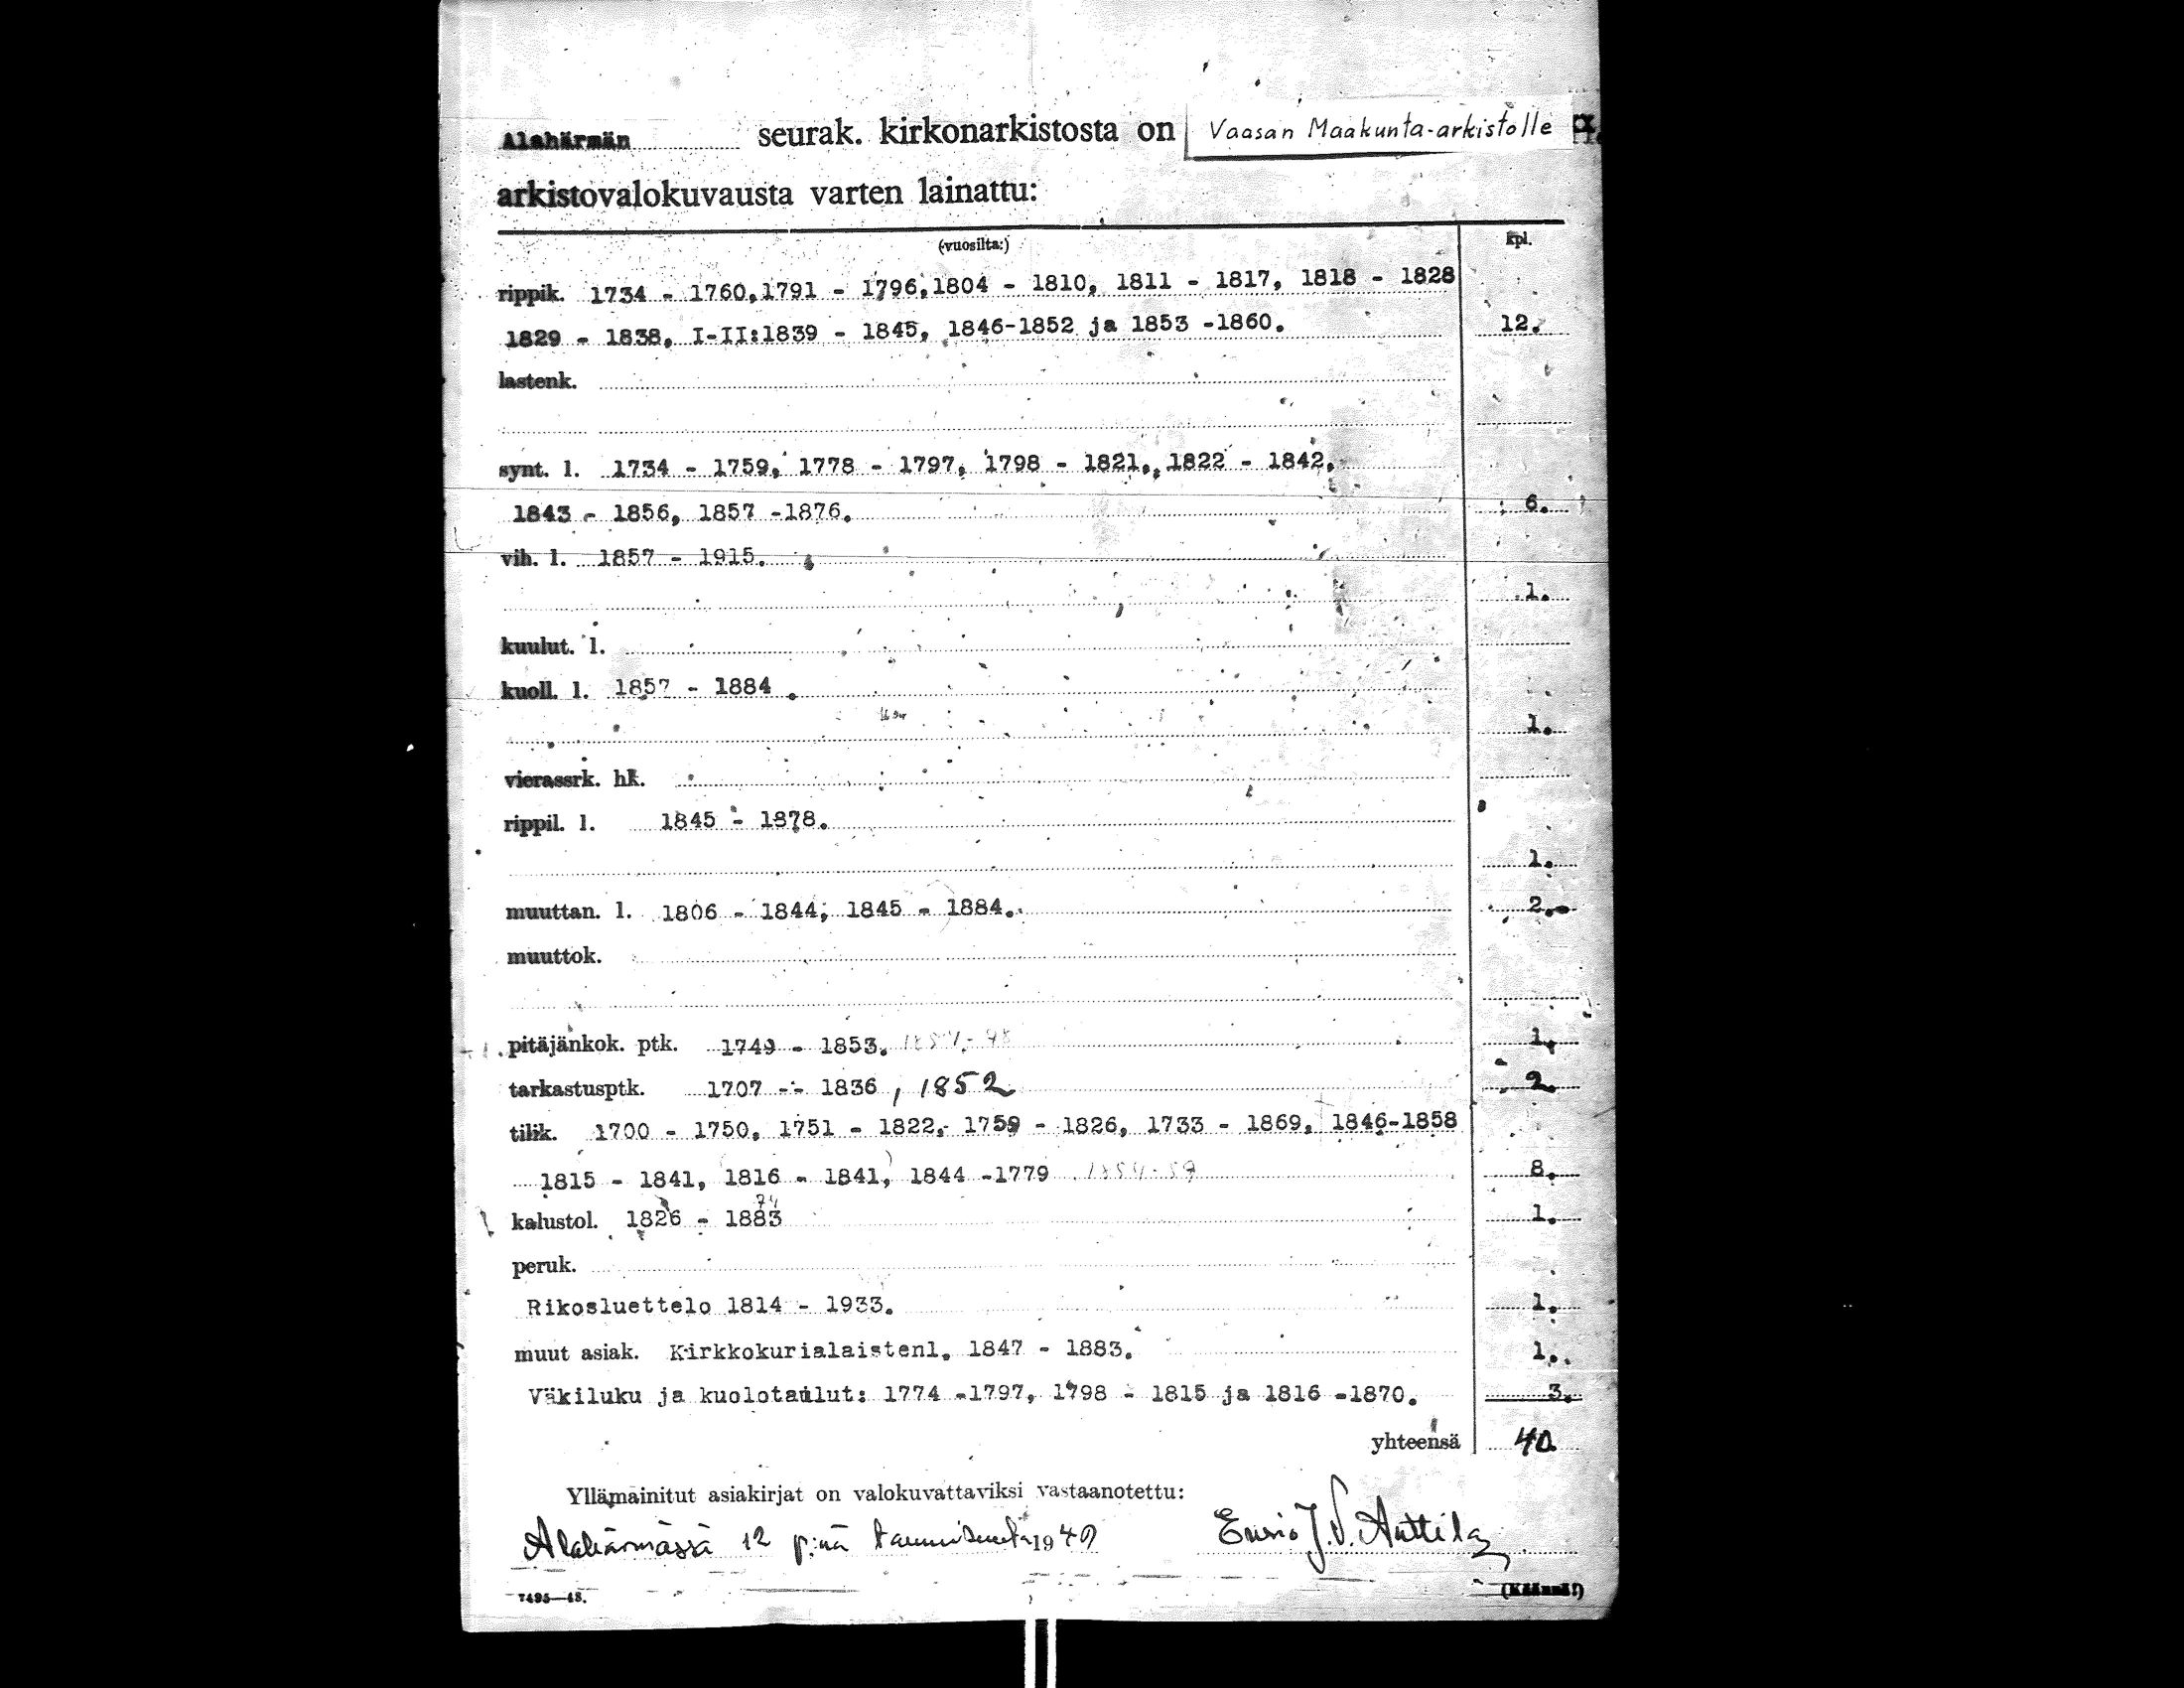 Alahärmän seurak. kirkonarkistosta on Vaasan Maakunta-arkistolle
arkistovalokuvausta varten lainattu:
(vuosilta:) kpl.
rippik. 1734 - 1760, 1791 - 1796, 1804 - 1810, 1811 - 1817, 1818 - 1828
1829 - 1838, I-II:1839 - 1845, 1846-1852 ja 1853 -1860. 12.
lastenk.
synt. l. 1734 - 1759, 1778 - 1797, 1798 - 1821, 1822 - 1842,
1843 - 1856, 1857 -1876. 6.
vih. l. 1857 - 1915.
1.
kuulut. l.
kuoll. l. 1857 - 1884.
1.
vierassrk. hk.
rippil. l. 1845 - 1878.
1.
muuttan. l. 1806 - 1844, 1845 - 1884. 2.
muuttok.
pitäjänkok. ptk. 1749 - 1853. 1.
tarkastusptk. 1707 -- 1836, 1852 2.
tilik. 1700 - 1750, 1751 - 1822, 1759 - 1826, 1733 - 1869, 1846-1858
1815 - 1841, 1816 - 1841, 1844 -1779 1854-59 8.
74
kalustol. 1826 - 1883 1.
peruk.
Rikosluettelo 1814 - 1933. 1.
muut asiak. Kirkkokurialaistenl. 1847 - 1883. 1.
Väkiluku ja kuolotaulut: 1774 -1797, 1798 - 1815 ja 1816 -1870. 3.
yhteensä 40.
Yllämainitut asiakirjat on valokuvattaviksi vastaanotettu:
Alahärmässä 12 p:nä tammikuuta 1949 Ensio J.V. Anttila
7495—48. (Käännä!)